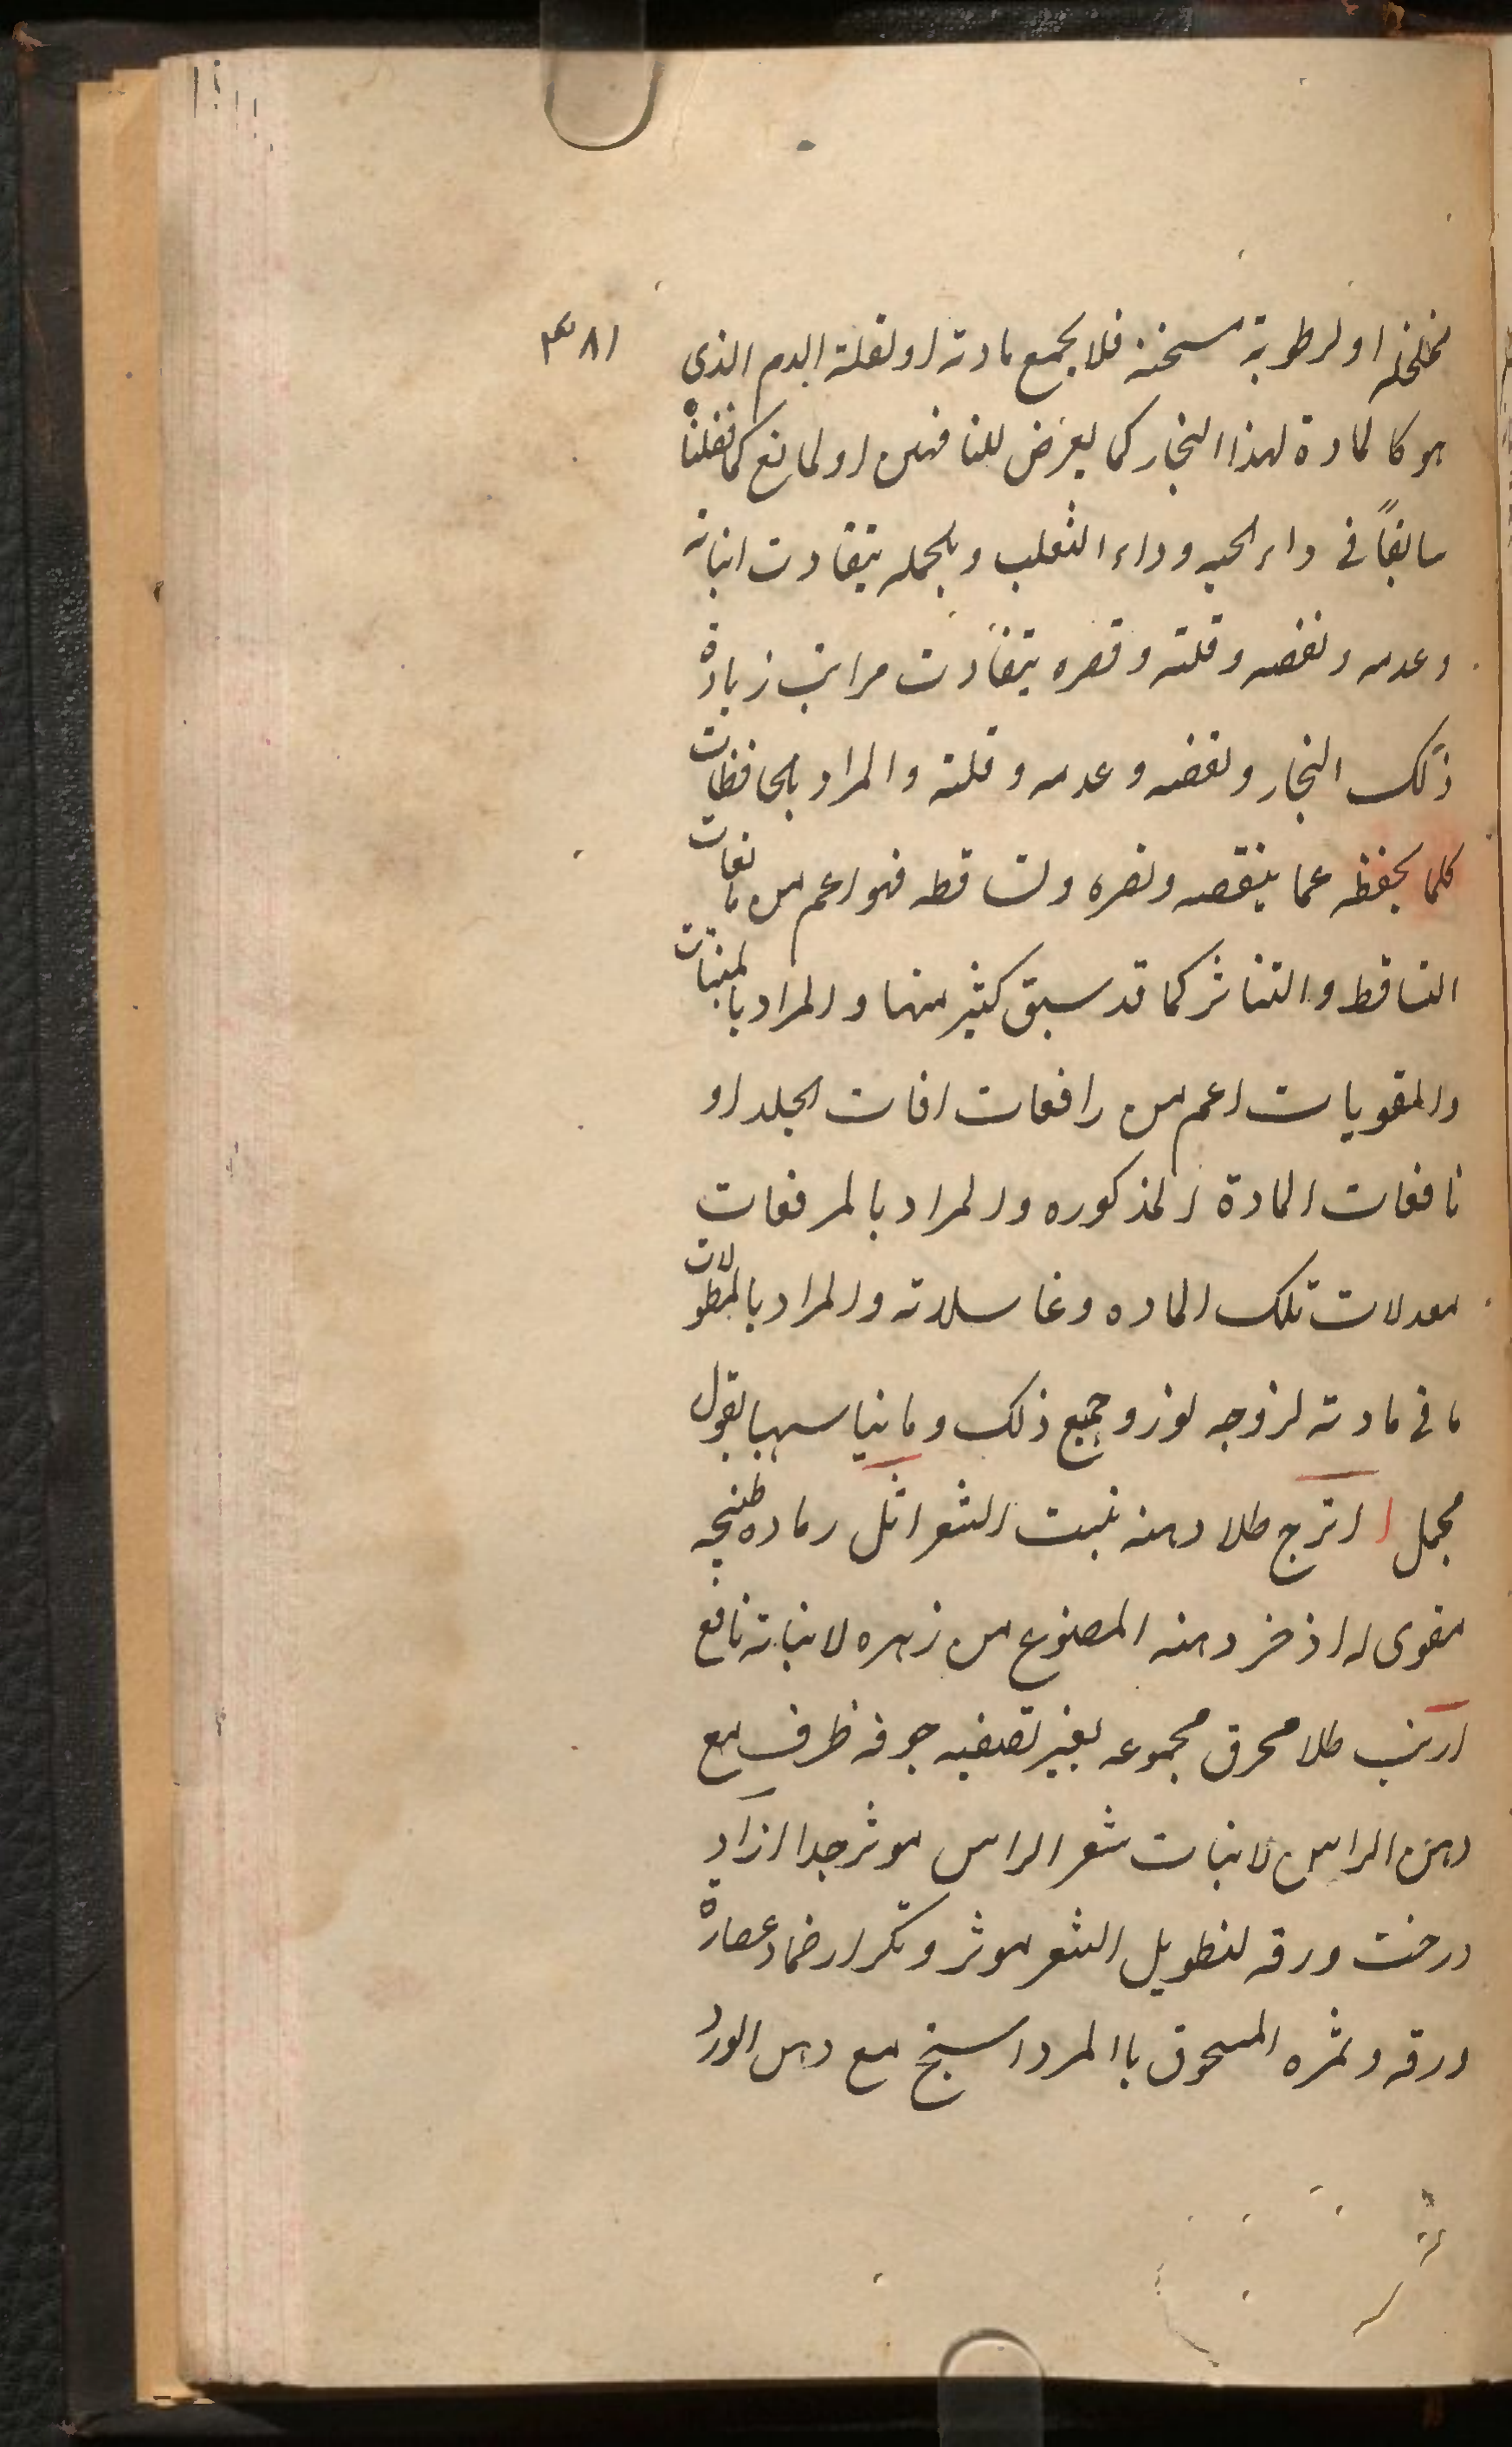 ٤٨١
متخلخله او لرطوبة مسخنه فلا يجمع مادته او لقلة الدم الذى
هو كالمادة لهذا البخار كما يعرض للناقهين او لمانع كما نقلنا
سابقاً فى داء الحيه وداء الثعلب وبالجمله يتفاوت انباته
وعدمه ونقصه وقلته وقصره بتفاوت مراتب زيادة
ذلك البخار ونقصه وعدمه وقلته والمراد بالحافظات
كلما يحفظه عما ينقصه وتضره وتساقطه فهو اعم من مانعات
التساقط والتناثر كما قد سبق كثير منها والمراد بالمنبتات
والمقويات اعم من رافعات افات الجلد او
نافعات المادة المذكوره والمراد بالمرفعات
معدلات تلك الماده وغاسلاته والمراد بالمطولات
ما فى مادته لزوجه لوز وجميع ذلك وما يناسبها بقول
مجمل اترج طلا دهنه ينبت الشعر اثل رماده طبيخه
مقوى له اذخر دهنه المصنوع من زهره لانباته نافع
ارنب طلا محرق مجموعه بغير تصفيه جوفه ظرف مع
دهن الراس لانبات شعر الراس موثر جدا ازاد
درخت ورقه لتطويل الشعر موثر وتكرار ضماد عصارة
ورقه وثمره المسحوق باالمرداسنج مع دهن الورد